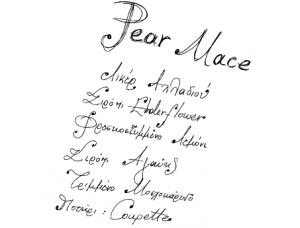 Pear Mace
Λικέρ Αχλαδιού
Σιρόπι Elderflower
Φρεσκοστυμμένο Λεμόνι
Σιρόπι Αγαύης
Τριμμένο Μοσχοκάρυδο
Ποτήρι : Coupette